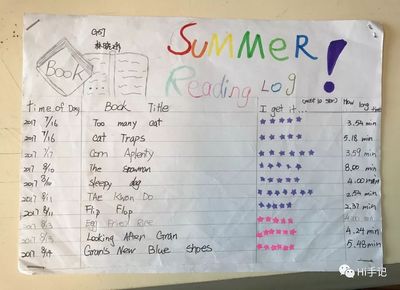 SUMMER !
Reading LOG
BOOK
Time of Day Book Title I get it... (most 10 star) How long
2017 7/16 Too many cat ★★★★★ 3.54 min
2017 7/16 Cat Traps ★★★★★ 5.18 min
2017 7/17 Corn Aplenty 3.59 min
2017 8/10 The snowman 8.00 min
2017 8/10 Sleepy dog 4.00 min
2017 8/11 TAE Kwon Do 2.54 min
2017 8/11 Flip Flop 2.37 min
2017 8/13 Egg Fried Rice 4.00 min
2017 8/13 Looking After Gran 4.24 min
2017 8/14 Gran's New Blue shoes 5.48 min
Hi手记